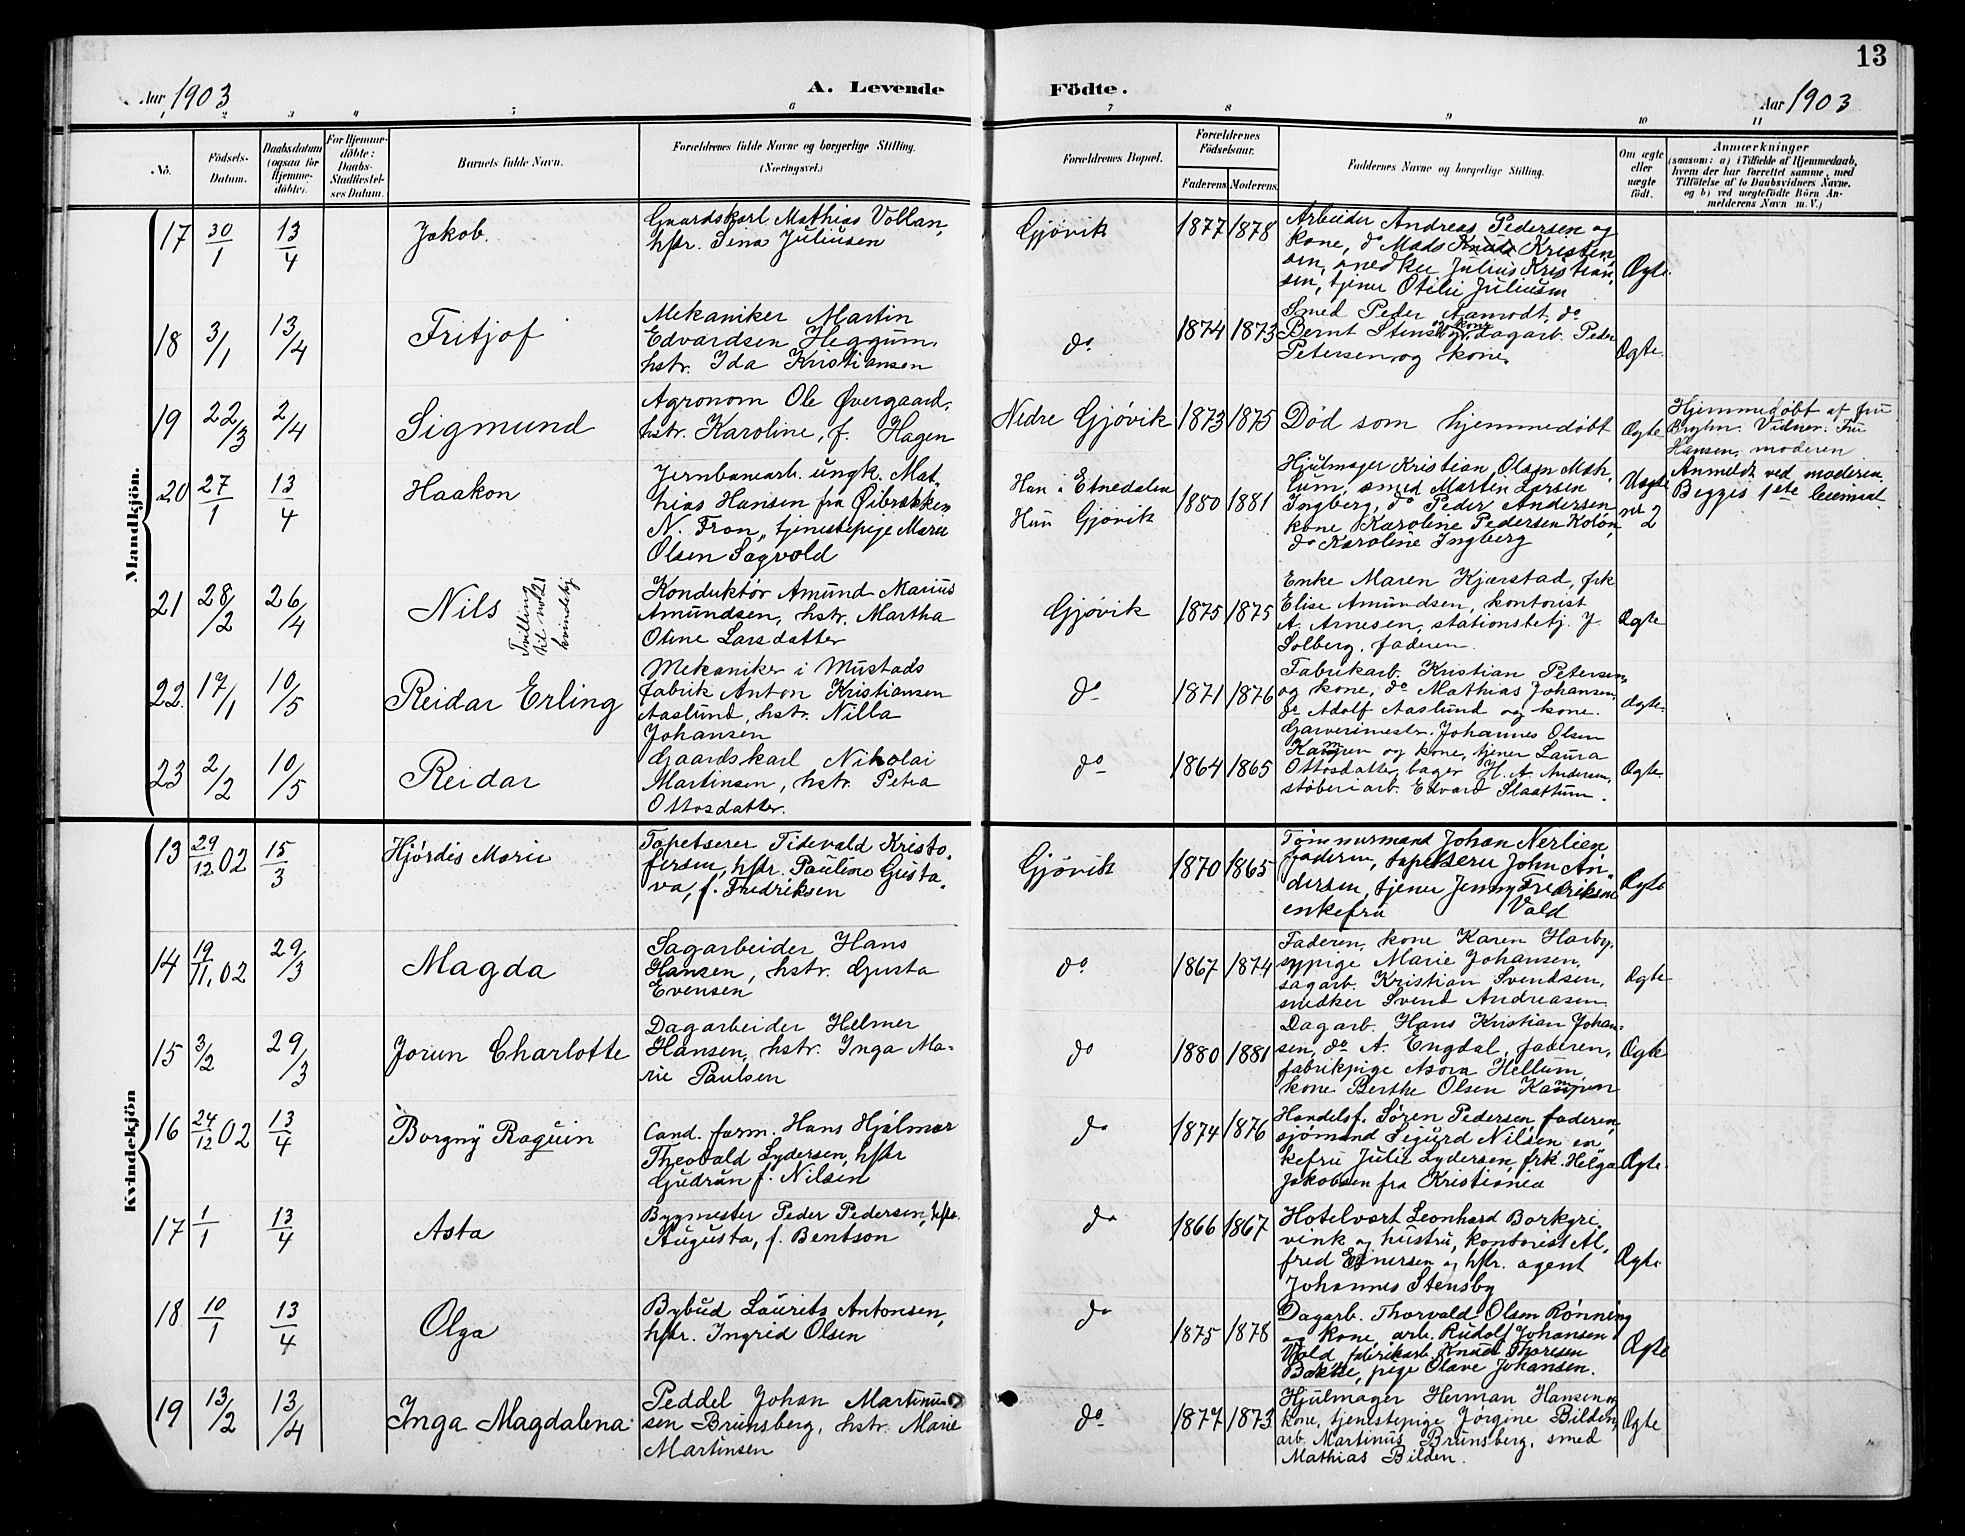 13
Aar 1903
A. Levende
Födte.
Aar 1903
1 2 3 4 5 6 7 8 9 10 11
No.
Födsels-Datum.
Daabsdatum (ogsaa for Hjemme-döbte).
For Hjemme-döbte: Daabs-Stadfæstel-ses Datum.
Barnets fulde Navn.
Forældrenes fulde Navne og borgerlige Stilling. (Næringsvei.)
Forældrenes Bopæl.
Forældrenes Födselsaar.
Faderens. Moderens.
Faddernes Navne og borgerlige Stilling.
Om ægte eller uægte födt.
Anmærkninger
(saasom: a) i Tilfælde af Hjemmedaab, hvem der har forrettet samme, med Tilföielse af to Daabsvidners Navne, og b) ved uægtefödte Börn An-melderens Navn m. V.)
Mandkjön.
17 30/1 13/4 Jakob.
Gaardskarl Mathias Vollan,
hstr. Sina Juliusen
Gjøvik 1877 1878
Arbeider Andreas Pedersen og
kone, do Mads Knuds Kristen
sen, snedker Julius Kristian,
sen, tjener Otilie Juliusen
Ægte.
18 3/1 13/4 Fritjof
Mekaniker Martin
Edvardsen Heggum,
hstr. Ida Kristiansen
do 1874 1873
Smed Peder Aamodt, do
Bernt Stensby og kone, dagarb. Peder
Petersen og kone.
Ægte.
19 22/3 2/4 Sigmund
Agronom Ole Øvergaard,
hstr. Karoline, f. Hagen
Nedre Gjøvik 1873 1875
Død som hjemmedøbt
Ægte
Hjemmedøbt af fru
Vidner: Fru
Hansen, moderen.
20 27/1 13/4 Haakon
Jernbanearb. ungk. Mat,
hias Hansen fra Øibrekken
N. Fron, tjenestepige Maren
Olsen Sagvold
Han i Etnedalen
Hun Gjøvik
1880 1881
Hjulmager Kristian Olsen Mæh,
lum, smed Martin Larsen
Ingberg, do Peder Andersen
kone Karoline Pedersen Koløn,
do Karoline Ingberg
Uægte
nr 2
Anmeldt ved moderen.
Begges 1ste leiermaal.
21 28/2 26/4 Nils
Tvilling
til no 21
kvindekj
Konduktør Amund Marius
Amundsen, hstr. Martha
Otine Larsdatter
Gjøvik 1875 1875
Enke Maren Kjærstad, frk
Elise Amundsen, kontorist
A. Arnesen, stationsbetj. J.
Solberg, faderen.
Ægte
22. 17/1 10/5 Reidar Erling
Mekaniker i Mustads
fabrik Anton Kristiansen
Aaslund, hstr. Nilla
Johansen
do 1871 1876
Fabrikarb. Kristian Petersen,
og kone, do Mathias Johansen,
do Adolf Aaslund og kone.
Ægte.
23 2/2 10/5 Reidar
Gaardskarl Nikolai
Martinsen, hstr. Petra
Ottosdatter.
do 1864 1865
Garverimestr. Johannes Olsen
Kampen og kone, tjener Laura
Ottosdatter, bager H. A. Andersen,
støberiarb. Edvard Slaattum.
Ægte.
Kvindekjön
13 29/12 02 15/3 Hjørdis Marie
Tapetserer Tidevald Kristo,
fersen, hstr. Pauline Gusta,
va, f. Fredriksen
Gjøvik 1870 1865
Tømmermand Johan Nerlien
faderen, tapetserer John An,
dersen, tjener Jenny Fredriksen
enkefru Vold
Ægte
14 19/11, 02 29/3 Magda
Sagarbeider Hans
Hansen, hstr. Gusta
Evensen
do 1867 1874
Faderen, kone Karen Harby,
sypige Marie Johansen,
sagarb. Kristian Svendsen,
snedker Svend Andreasen
Ægte
15 3/2 29/3 Jorun Charlotte
Dagarbeider Helmer
Hansen, hstr. Inga Ma-
rie Paulsen
do 1880 1881
Dagarb. Hans Kristian Johan-
sen, do A. Engdal, faderen,
fabrikpige Asora Hellum,
kone Berthe Olsen Kampen
Ægte
16 24/12 02 13/4 Borgny Raguin
Cand. farm. Hans Hjalmar
Theovald Lydersen, hstr
Gudrun f. Nilsen
do 1874 1876
Handelsf. Søren Pedersen, faderen,
sjømand Sigurd Nilsen en,
kefru Julie Lydersen, frk. Helga
Jakobsen fra Kristiania
Ægte.
17 1/1 13/4 Asta
Bygmester Peder Pedersen, hstr.
Augusta, f. Bentson
do 1866 1867
Hotelvært Leonhard Borkgre,
vink og hustru, kontorist Al,
fred Einersen og hstr. agent
Johannes Stensby
Ægte.
18 10/1 13/4 Olga
Bybud Laurits Antonsen,
hstr. Ingrid Olsen
do 1875 1878
Dagarb. Thorvald Olsen Rønning
og kone, arb. Rudolf Johansen
Vold, fabrikarb. Knud Thorsen
Bakke, pige Olave Johansen.
Ægte
19 13/2 13/4 Inga Magdalena
Peddel Johan Martinu-
sen Brunsberg, hstr. Marie
Martinsen
do 1877 1873
Hjulmager Herman Hansen og
kone, tjenestepige Jørgine Bilden,
arb. Martinus Brunsberg, smed
Mathias Bilden.
Ægte